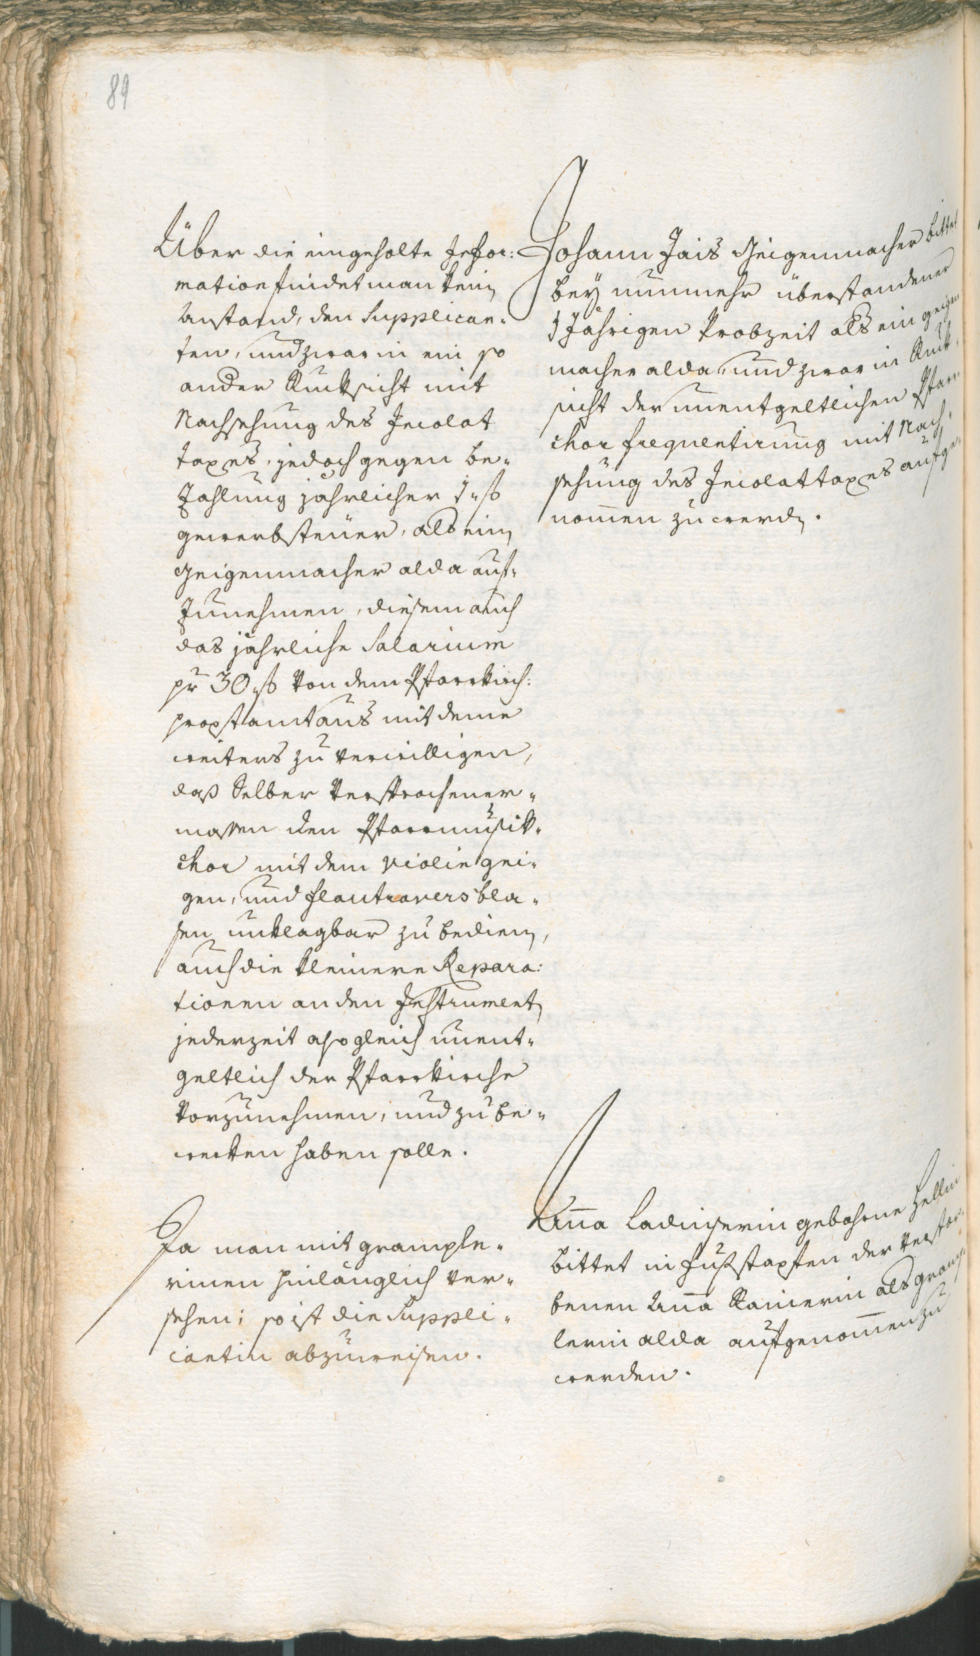 89
Über die eingeholte Infor:
mation findet man kein
Anstand, den Supplican-
ten, und zwar in ein so
ander Rucksicht mit
Nachsehung des Incolat
taxes, jedoch gegen be-
zahlung jährlicher 1 f
gewerbsteuer, als ein
Geigenmacher alda auf-
zunehmen, diesem auch
das jährliche Salarium
pr 30 f von dem Pfarrkirch:
propstamt aus mit deme
weiters zu verwilligen,
daß Selber versprochener-
massen den Pfarrmusik-
chor mit dem Violin gei-
gen, und flautraversbla-
sen unklagbar zu bedienen,
auch die kleinere Repara:
tionen an den Instrumenten
jederzeit also gleich unent-
geltlich der Pfarrkirche
vorzunehmen, und zu be-
werken haben solle.
Johann Jais Geigenmacher bittet
bey nunmehr überstandener
Jährigen Probzeit als ein geigen
macher alda, und zwar in Ruck-
sicht der unentgeltlichen Pfarr
chor frequentirung mit Nach
sehung des Incolattaxes aufge
nommen zu werden.
Da man mit grample-
rinen hinlänglich ver-
sehen; so ist die Suppli-
cantin abzuweisen.
Anna Ladingerin gebohrne Hellin
bittet in Fußstapfen der verstor
benen Anna Rainerin als gramp
lerin alda aufgenommen zu
werden.